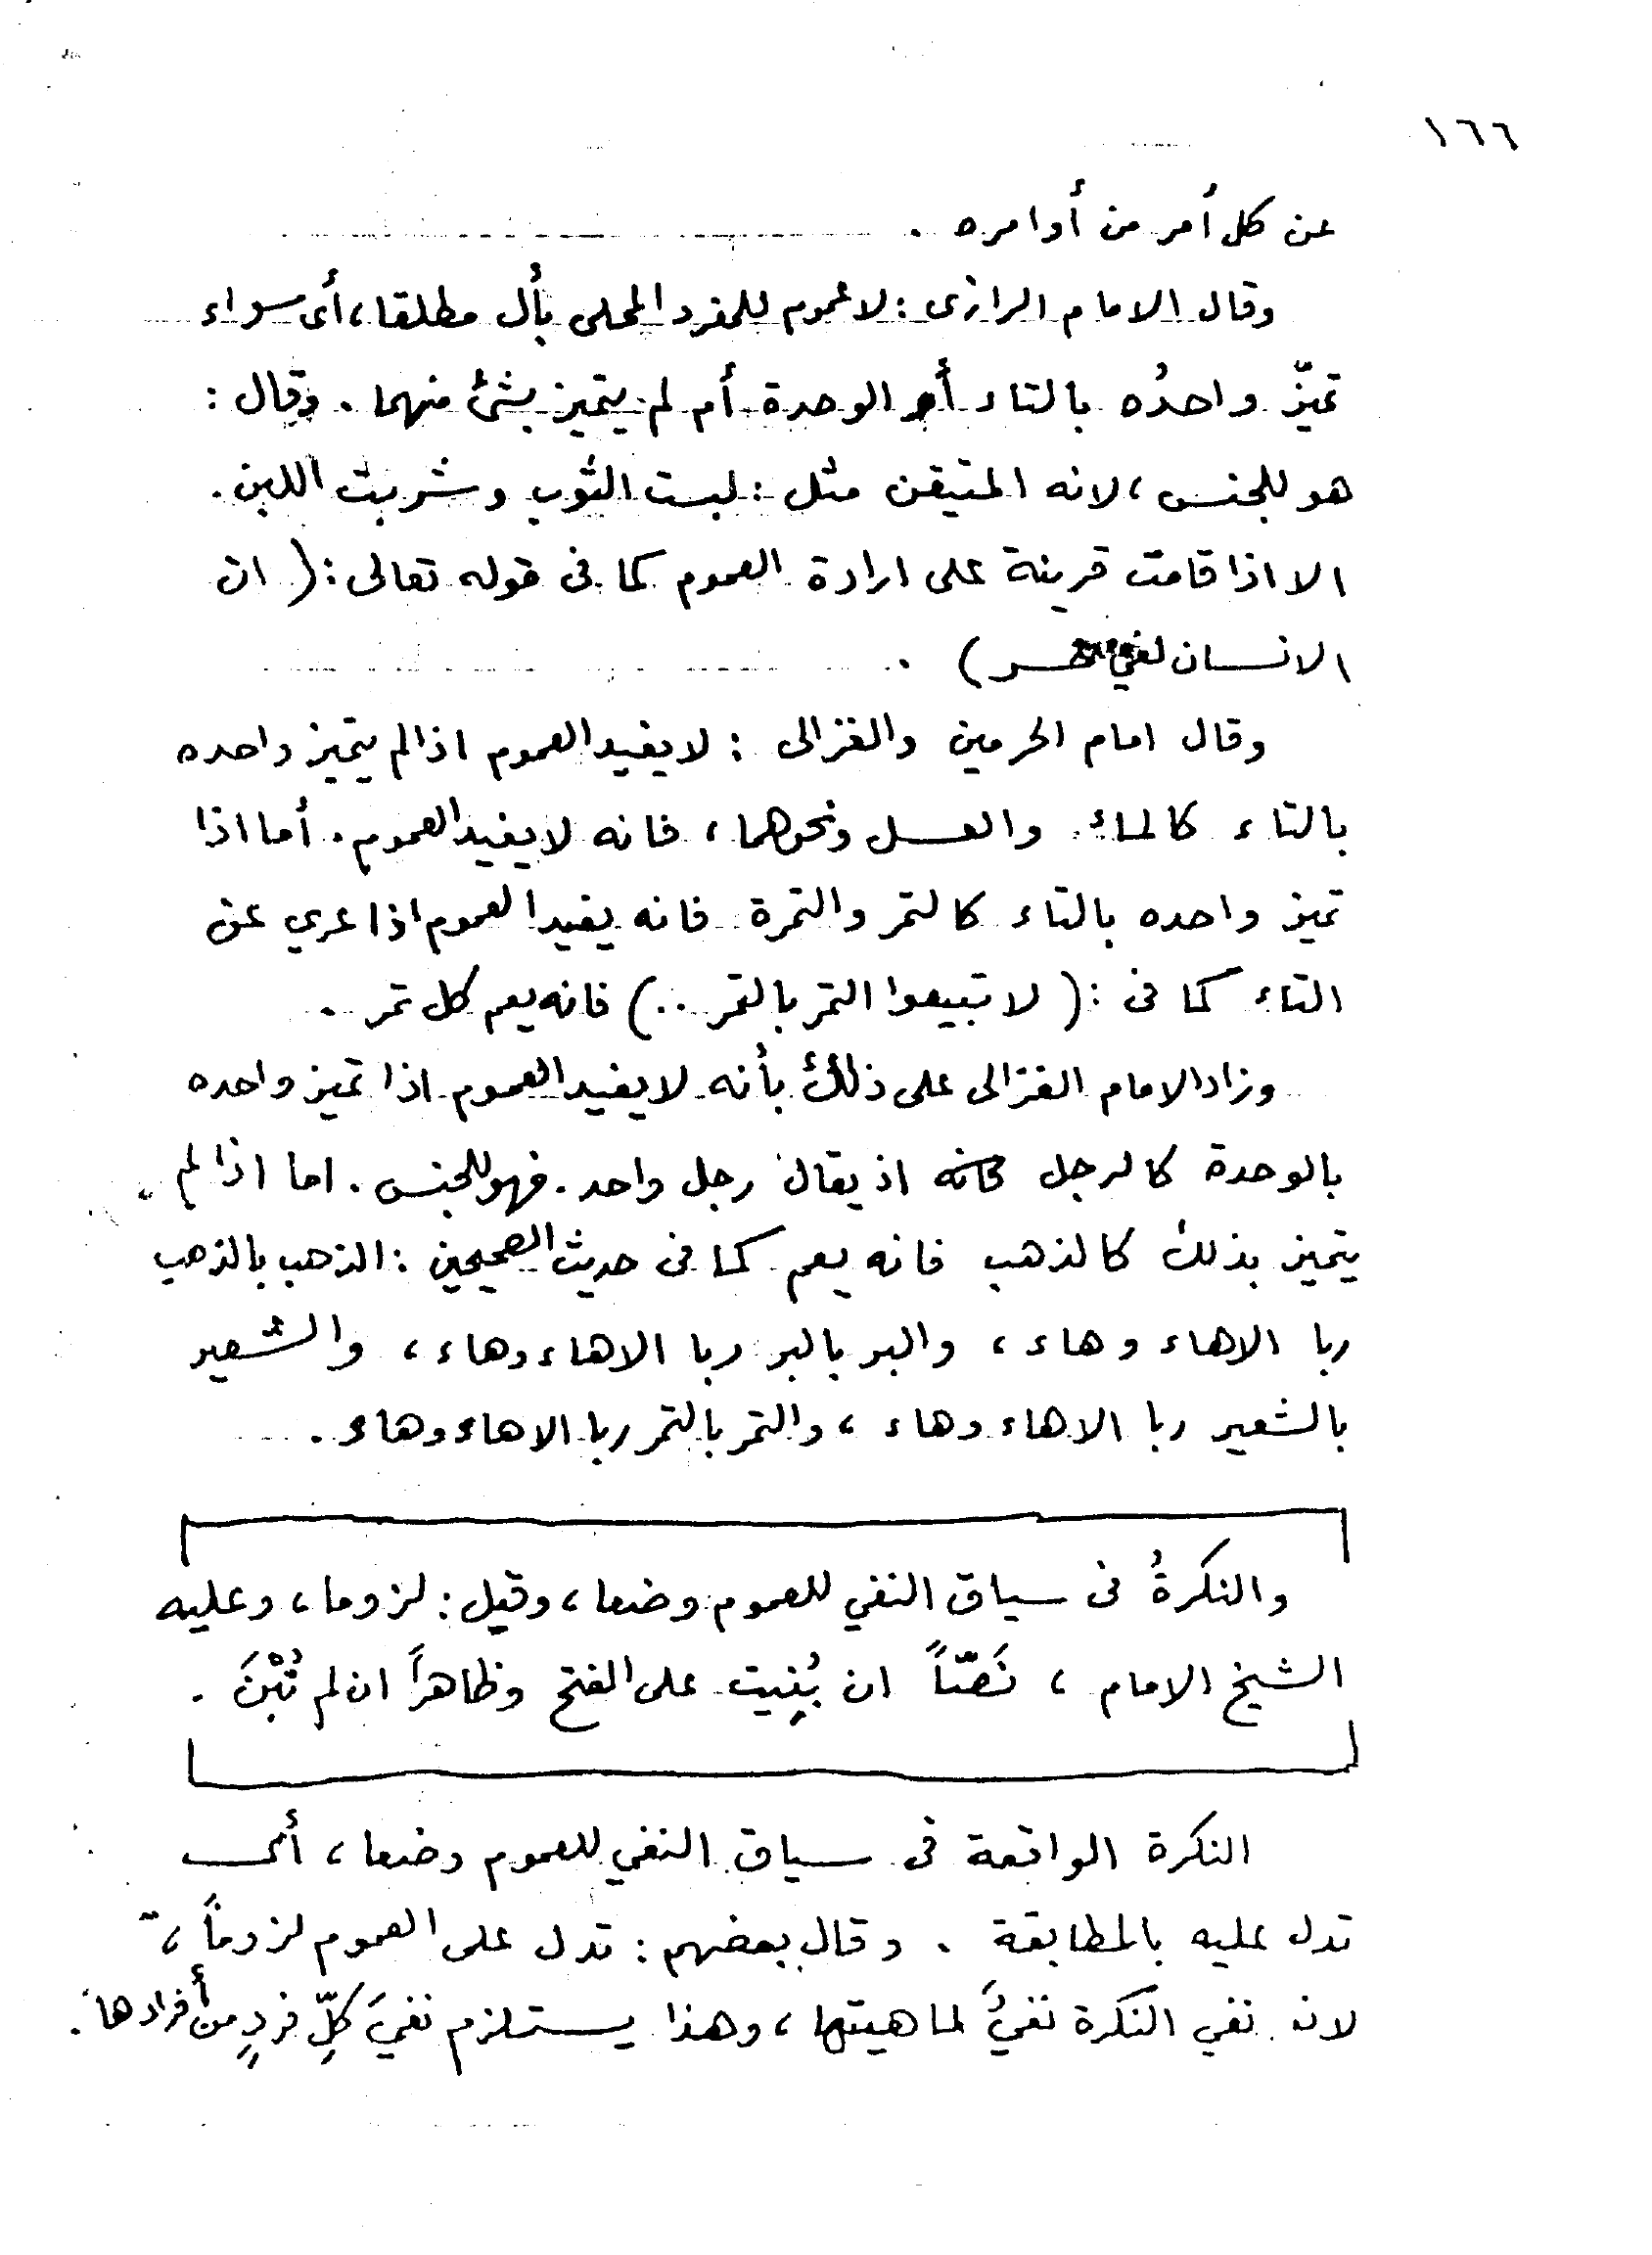 ١٦٦
عن كل أمر من أوامره .
وقال الامام الرازى : لا عموم للمفرد المحلى بأل مطلقا ، أى سواء
تميّز واحدُه بالتاء أم الوحدة أم لم يتميز بشئ منهما . وقال :
هو للجنس ، لانه المتيقن مثل : لبست الثوب وشربت اللبن .
الا اذا قامت قرينة على ارادة العموم كما فى قوله تعالى : ( ان
الانسان لفي خسر ) .
وقال امام الحرمين والغزالى : لا يفيد العموم اذا لم يتميز واحده
بالتاء كالماء والعسل ونحوهما ، فانه لا يفيد العموم . أما اذا
تميز واحده بالتاء كالتمر والتمرة فانه يفيد العموم اذا عري عن
التاء كما فى : ( لا تبيعوا التمر بالتمر .. ) فانه يعم كل تمر .
وزاد الامام الغزالى على ذلك بأنه لا يفيد العموم اذا تميز واحده
بالوحدة كالرجل فانه اذ يقال رجل واحد . فهو للجنس . اما اذا لم
يتميز بذلك كالذهب فانه يعم كما فى حديث الصحيحين : الذهب بالذهب
ربا الا هاء وهاء ، والبر بالبر ربا الا هاء وهاء ، والشعير
بالشعير ربا الا هاء وهاء ، والتمر بالتمر ربا الا هاء وهاء .
والنكرةُ فى سياق النفي للعموم وضعا ، وقيل : لزوما ، وعليه
الشيخ الامام ، نَصّاً ان بُنِيت على الفتح وظاهراً ان لم تُبْنَ .
النكرة الواقعة فى سياق النفي للعموم وضعا ، أى
تدل عليه بالمطابقة . وقال بعضهم : تدل على العموم لزوماً ،
لان نفي النكرة نفيٌ لماهيتها ، وهذا يستلزم نفيَ كلِّ فردٍ من أفرادها .